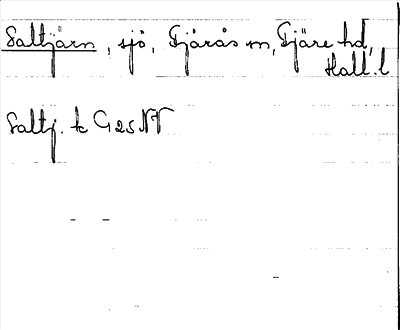 Saltjärn, sjö, Fjärås sn, Fjäre hd,
Hall. l
Saltj. tc G25 NV